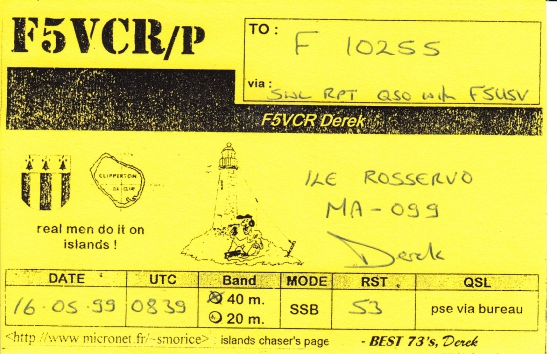 F5VCR/P
TO :
F 10255
via :
SWL RPT QSO with F5USV
F5VCR Derek
CLIPPERTON
real men do it on
islands !
ILE ROSSERVO
MA-099
Derek
DATE UTC Band MODE RST QSL
16-05-99 0839 40 m. 20 m. SSB 53 pse via bureau
<http://www.micronet.fr/~smorice> islands chaser's page - BEST 73's, Derek